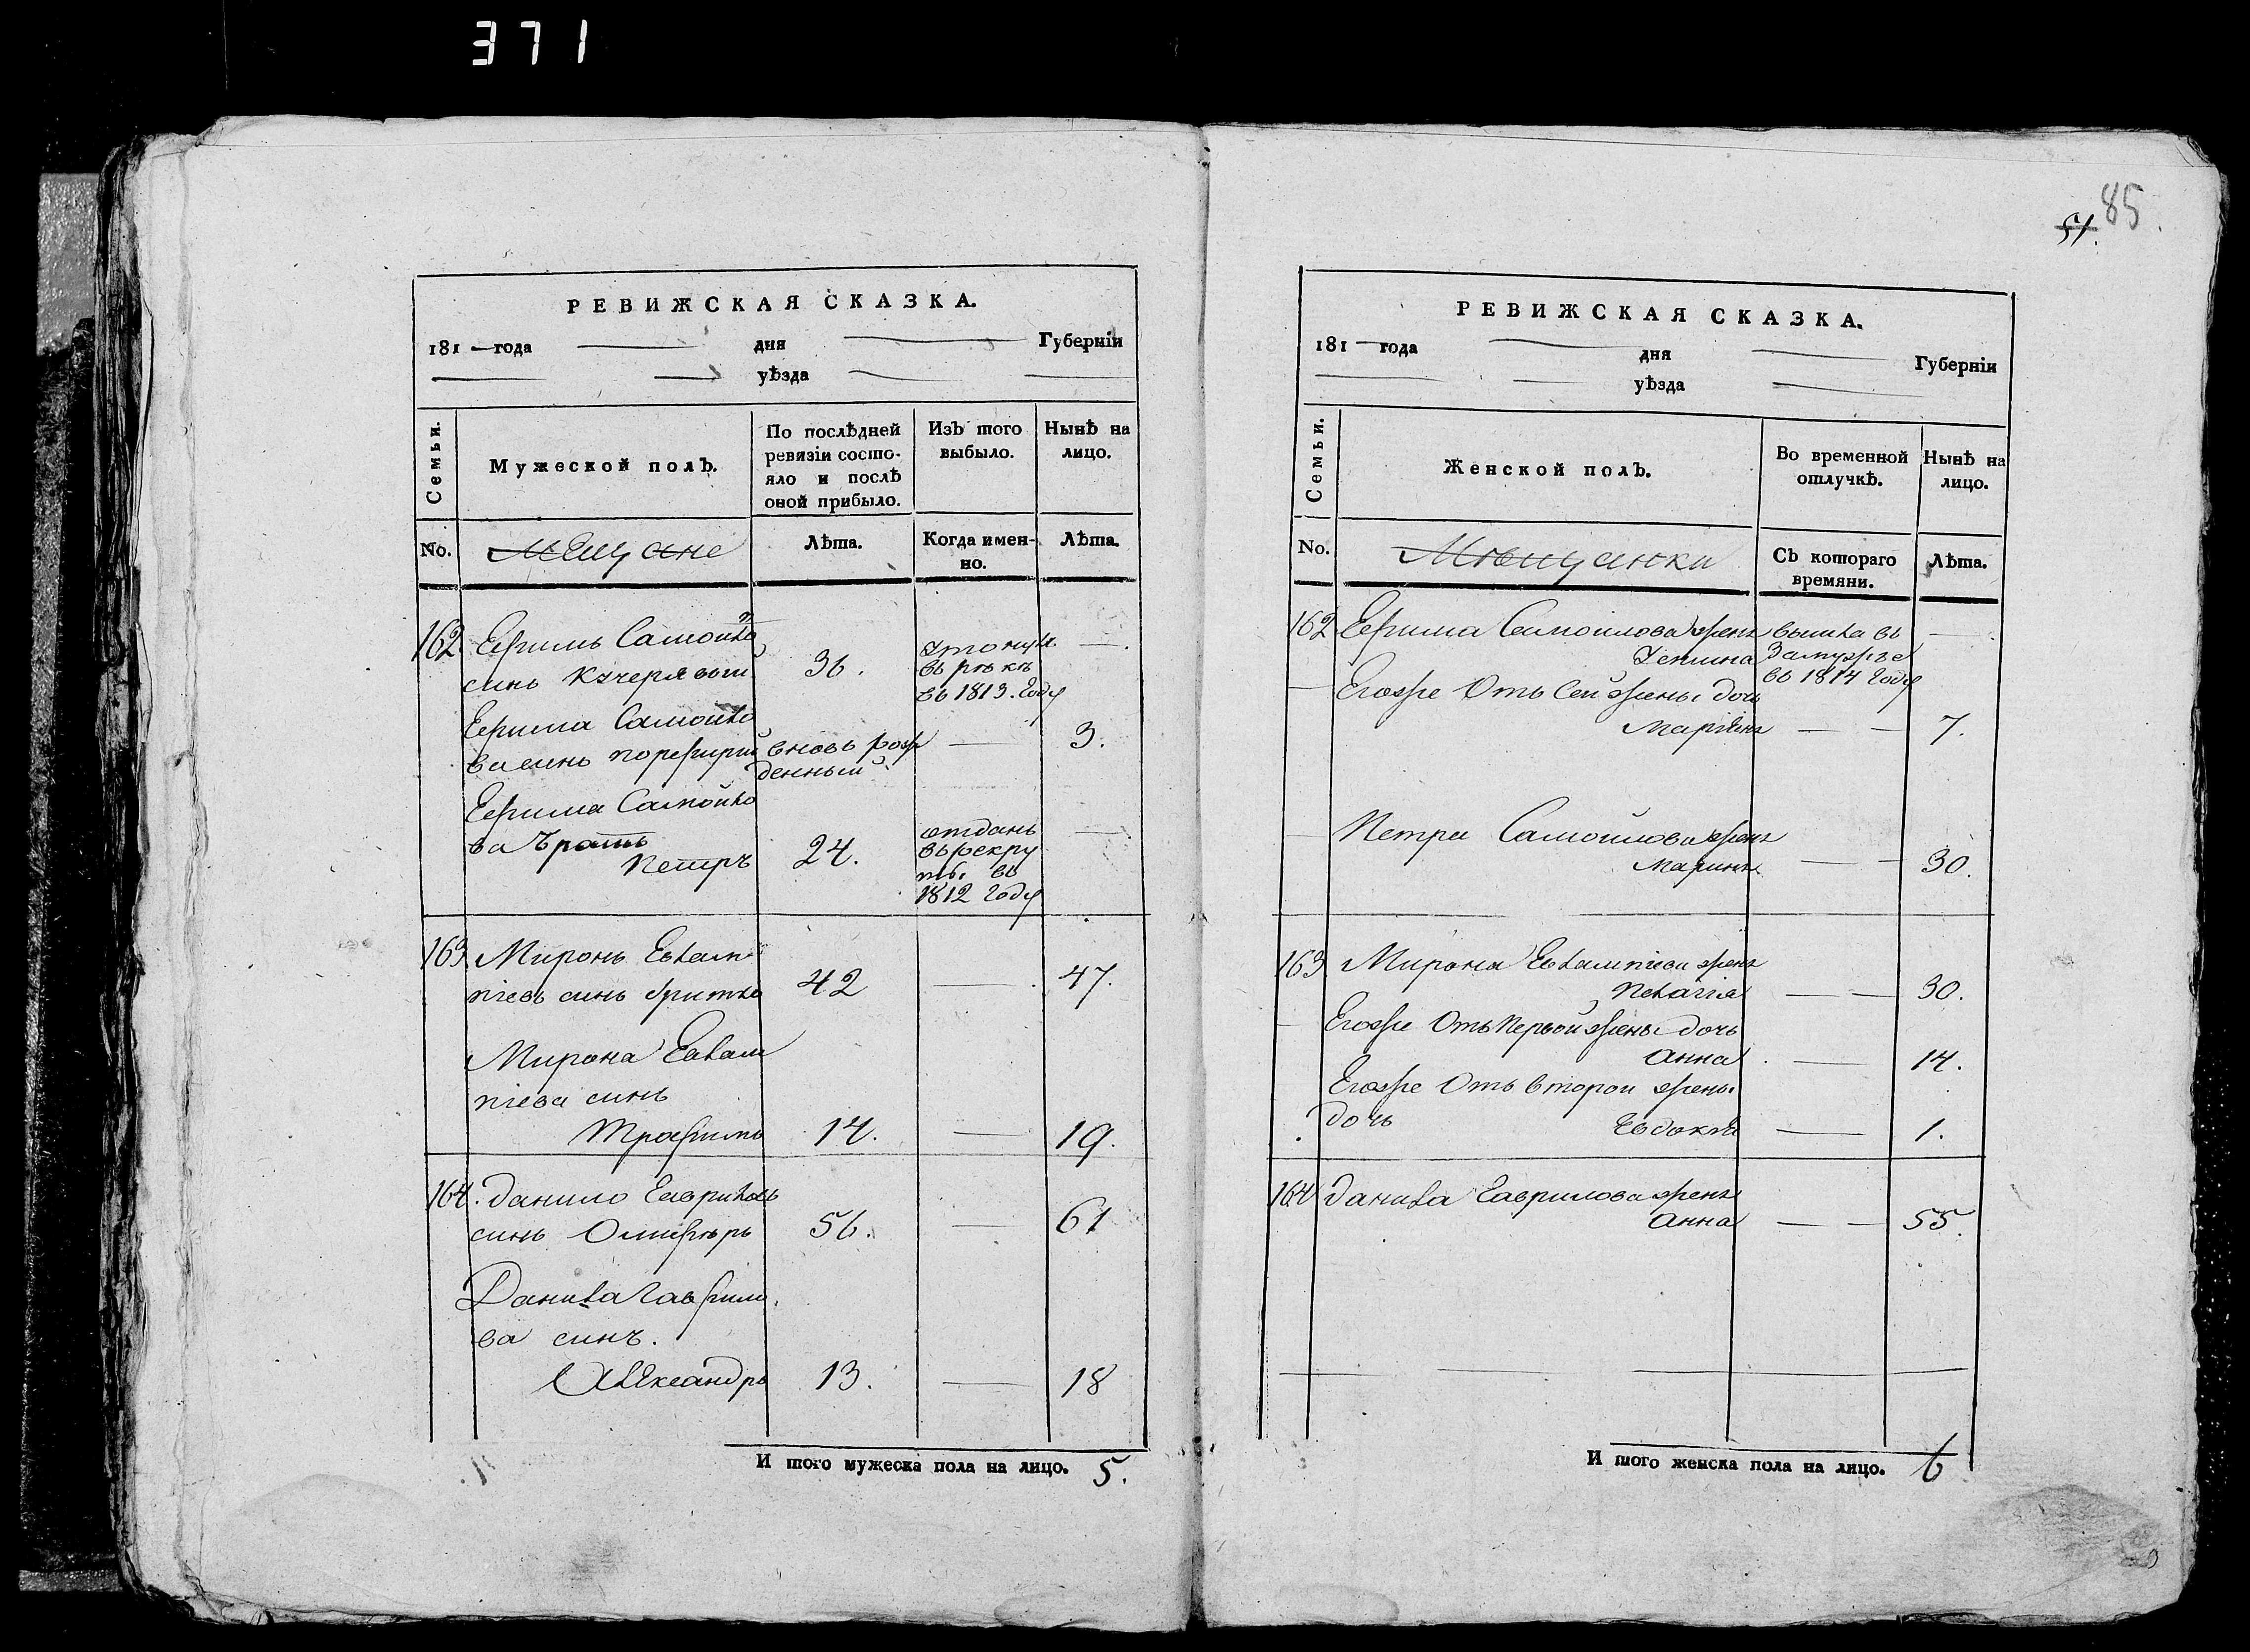 371
85.
57.
РЕВИЖСКАЯ СКАЗКА.
181 — года — дня — Губерніи
— — уѣзда — —
Семьи.
Мужеской полъ.
По послѣдней ревизіи состо-
яло и послѣ оной прибыло.
Изъ того выбыло.
Нынѣ на лицо.
No.
Мещане
Лѣта.
Когда имен-
но.
Лѣта.
162. Ефимъ Самойло
синь Кучерявый 36. утонулъ —.
въ рѣкѣ
въ 1813. Году
Ефима Самойло
ва синь порфирий вновь рож — 3.
денный
Ефима Самойло
ва братъ
Петръ 24. отданъ —
въ рекру
ты въ
1812 Году
163. Миронъ Евлам
піевъ синь 42 — 47.
Мирона Евлам
піева синъ
Трофимъ 14. — 19.
164. Данило Гаврилов
синь 56. — 61
Данила Гаврило
ва синъ.
Александръ 13. — 18
И того мужеска пола на лицо. 5.
РЕВИЖСКАЯ СКАЗКА.
181 — года — дня — Губерніи
— — уѣзда —
Семьи.
Женской полъ.
Во временной отлучкѣ.
Нынѣ на лицо.
No.
Мѣщанки
Съ котораго времяни.
Лѣта.
162 Ефима Самойлова жена вышла въ —
Замужье
въ 1814 Году
— Егожъ Отъ сей жены дочь
— — 7.
— Петра Самойлова жена
Марина — — 30.
163 Мирона Евлампіева жена
Пелагія — — 30.
— Егоже Отъ Первой жены дочь
Анна — 14.
Егоже Отъ второй жены
дочь Евдокія — 1.
164 Данила Гаврилова жена
Анна — — 55.
И того женска пола на лицо. 6